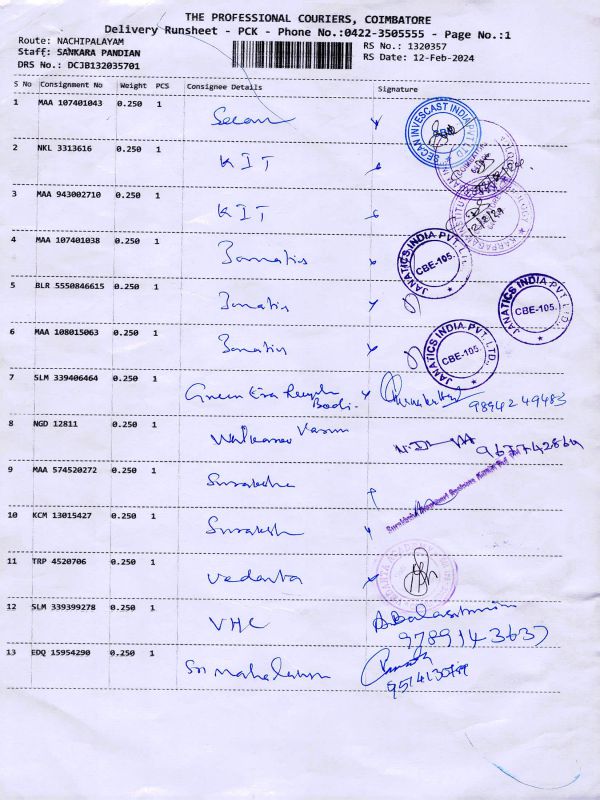 THE PROFESSIONAL COURIERS, COIMBATORE
Delivery Runsheet - PCK - Phone No.:0422-3505555 - Page No.:1
Route: NACHIPALAYAM
RS No.: 1320357
Staff: SANKARA PANDIAN
RS Date: 12-Feb-2024
DRS No.: DCJB132035701
S No Consignment No Weight PCS Consignee Details Signature
1 MAA 107401043 0.250 1 Secan
SECAN INVESCAST INDIA PVT LTD
2 NKL 3313616 0.250 1 KIT
3 MAA 943002710 0.250 1 KIT
12/2/24
4 MAA 107401038 0.250 1 Janatics
JANATICS INDIA PVT. LTD. CBE-105.
5 BLR 5550846615 0.250 1 Janatis
JANATICS INDIA PVT. LTD. CBE-105.
6 MAA 108015063 0.250 1 Janatis
JANATICS INDIA PVT. LTD. CBE-105.
7 SLM 339406464 0.250 1 Green Era
9894249483
8 NGD 12811 0.250 1 Vasun
9677742864
9 MAA 574520272 0.250 1
10 KCM 13015427 0.250 1 Suraksh
11 TRP 4520706 0.250 1 vedanta
12 SLM 339399278 0.250 1 VHC
9789143637
13 EDQ 15954290 0.250 1 Sri mahalaxmi